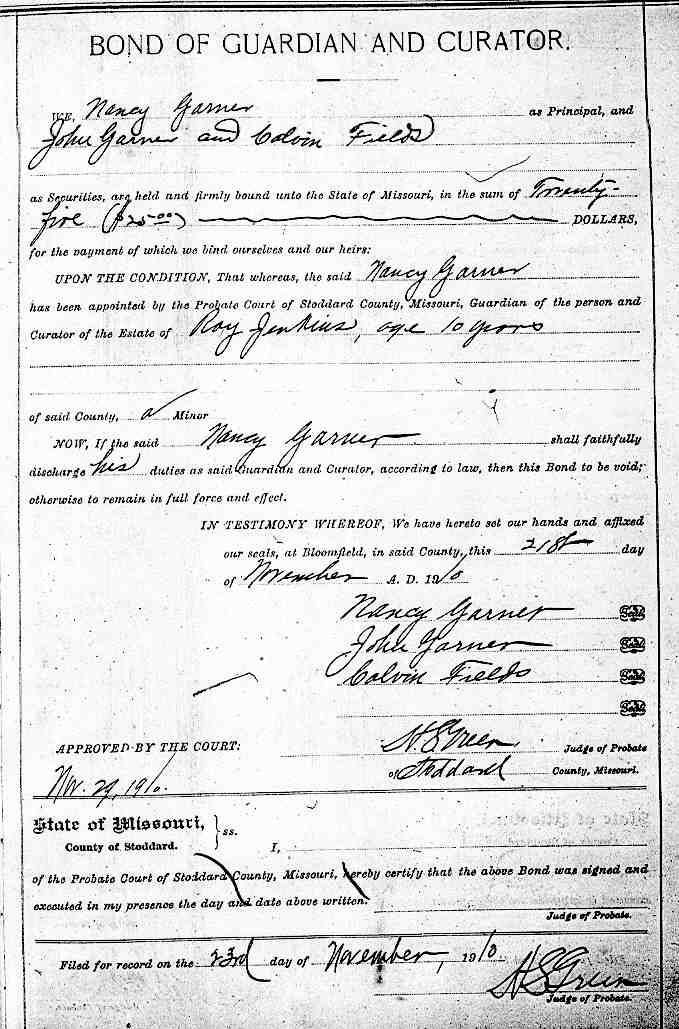 BOND OF GUARDIAN AND CURATOR.
WE, Nancy Garner as Principal, and
John Garner and Colvin Fields
as Securities, are held and firmly bound unto the State of Missouri, in the sum of Twenty-
five ($25.00) DOLLARS,
for the payment of which we bind ourselves and our heirs:
UPON THE CONDITION, That whereas, the said Nancy Garner
has been appointed by the Probate Court of Stoddard County, Missouri, Guardian of the person and
Curator of the Estate of Roy Jenkins, age 10 years
of said County, a Minor
NOW, If the said Nancy Garner shall faithfully
discharge his duties as said Guardian and Curator, according to law, then this Bond to be void;
otherwise to remain in full force and effect.
IN TESTIMONY WHEREOF, We have hereto set our hands and affixed
our seals, at Bloomfield, in said County, this 21st day
of November A. D. 1910
Nancy Garner Seal
John Garner Seal
Colvin Fields Seal
Seal
APPROVED BY THE COURT: H S Green Judge of Probate
of Stoddard County, Missouri.
Nov. 29, 1910.
State of Missouri, } ss.
County of Stoddard. I,
of the Probate Court of Stoddard County, Missouri, hereby certify that the above Bond was signed and
executed in my presence the day and date above written.
Judge of Probate.
Filed for record on the 23rd day of November, 1910.
H S Green
Judge of Probate.